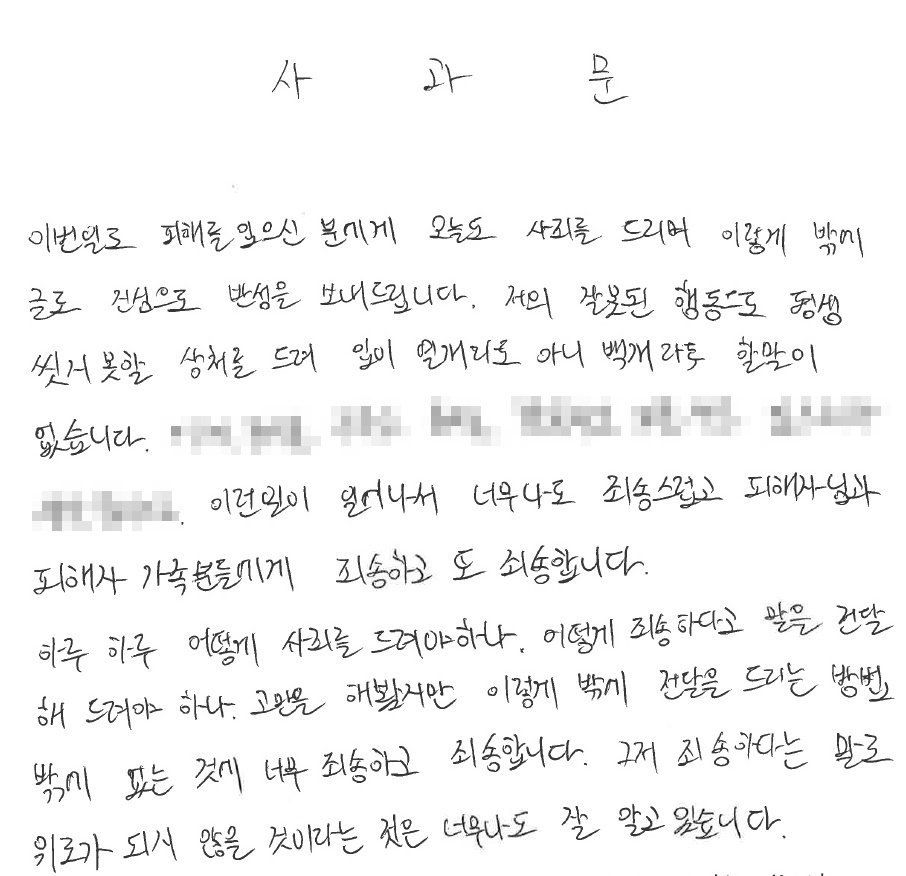 사 과 문
이번일로 피해를 입으신 분에게 오늘도 사죄를 드리며 이렇게 밖에
글로 진심으로 반성을 보내드립니다. 저의 잘못된 행동으로 평생
씻지 못할 상처를 드려 입이 열개라도 아니 백개라도 할말이
없습니다.
이런일이 일어나서 너무나도 죄송스럽고 피해자님과
피해자 가족분들에게 죄송하고 또 죄송합니다.
하루 하루 어떻게 사죄를 드려야하나. 어떻게 죄송하다고 말을 전달
해 드려야 하나. 고민을 해봤지만 이렇게 밖에 전달을 드리는 방법
밖에 없는 것에 너무 죄송하고 죄송합니다. 그저 죄송하다는 말로
위로가 되지 않을 것이라는 것은 너무나도 잘 알고 있습니다.